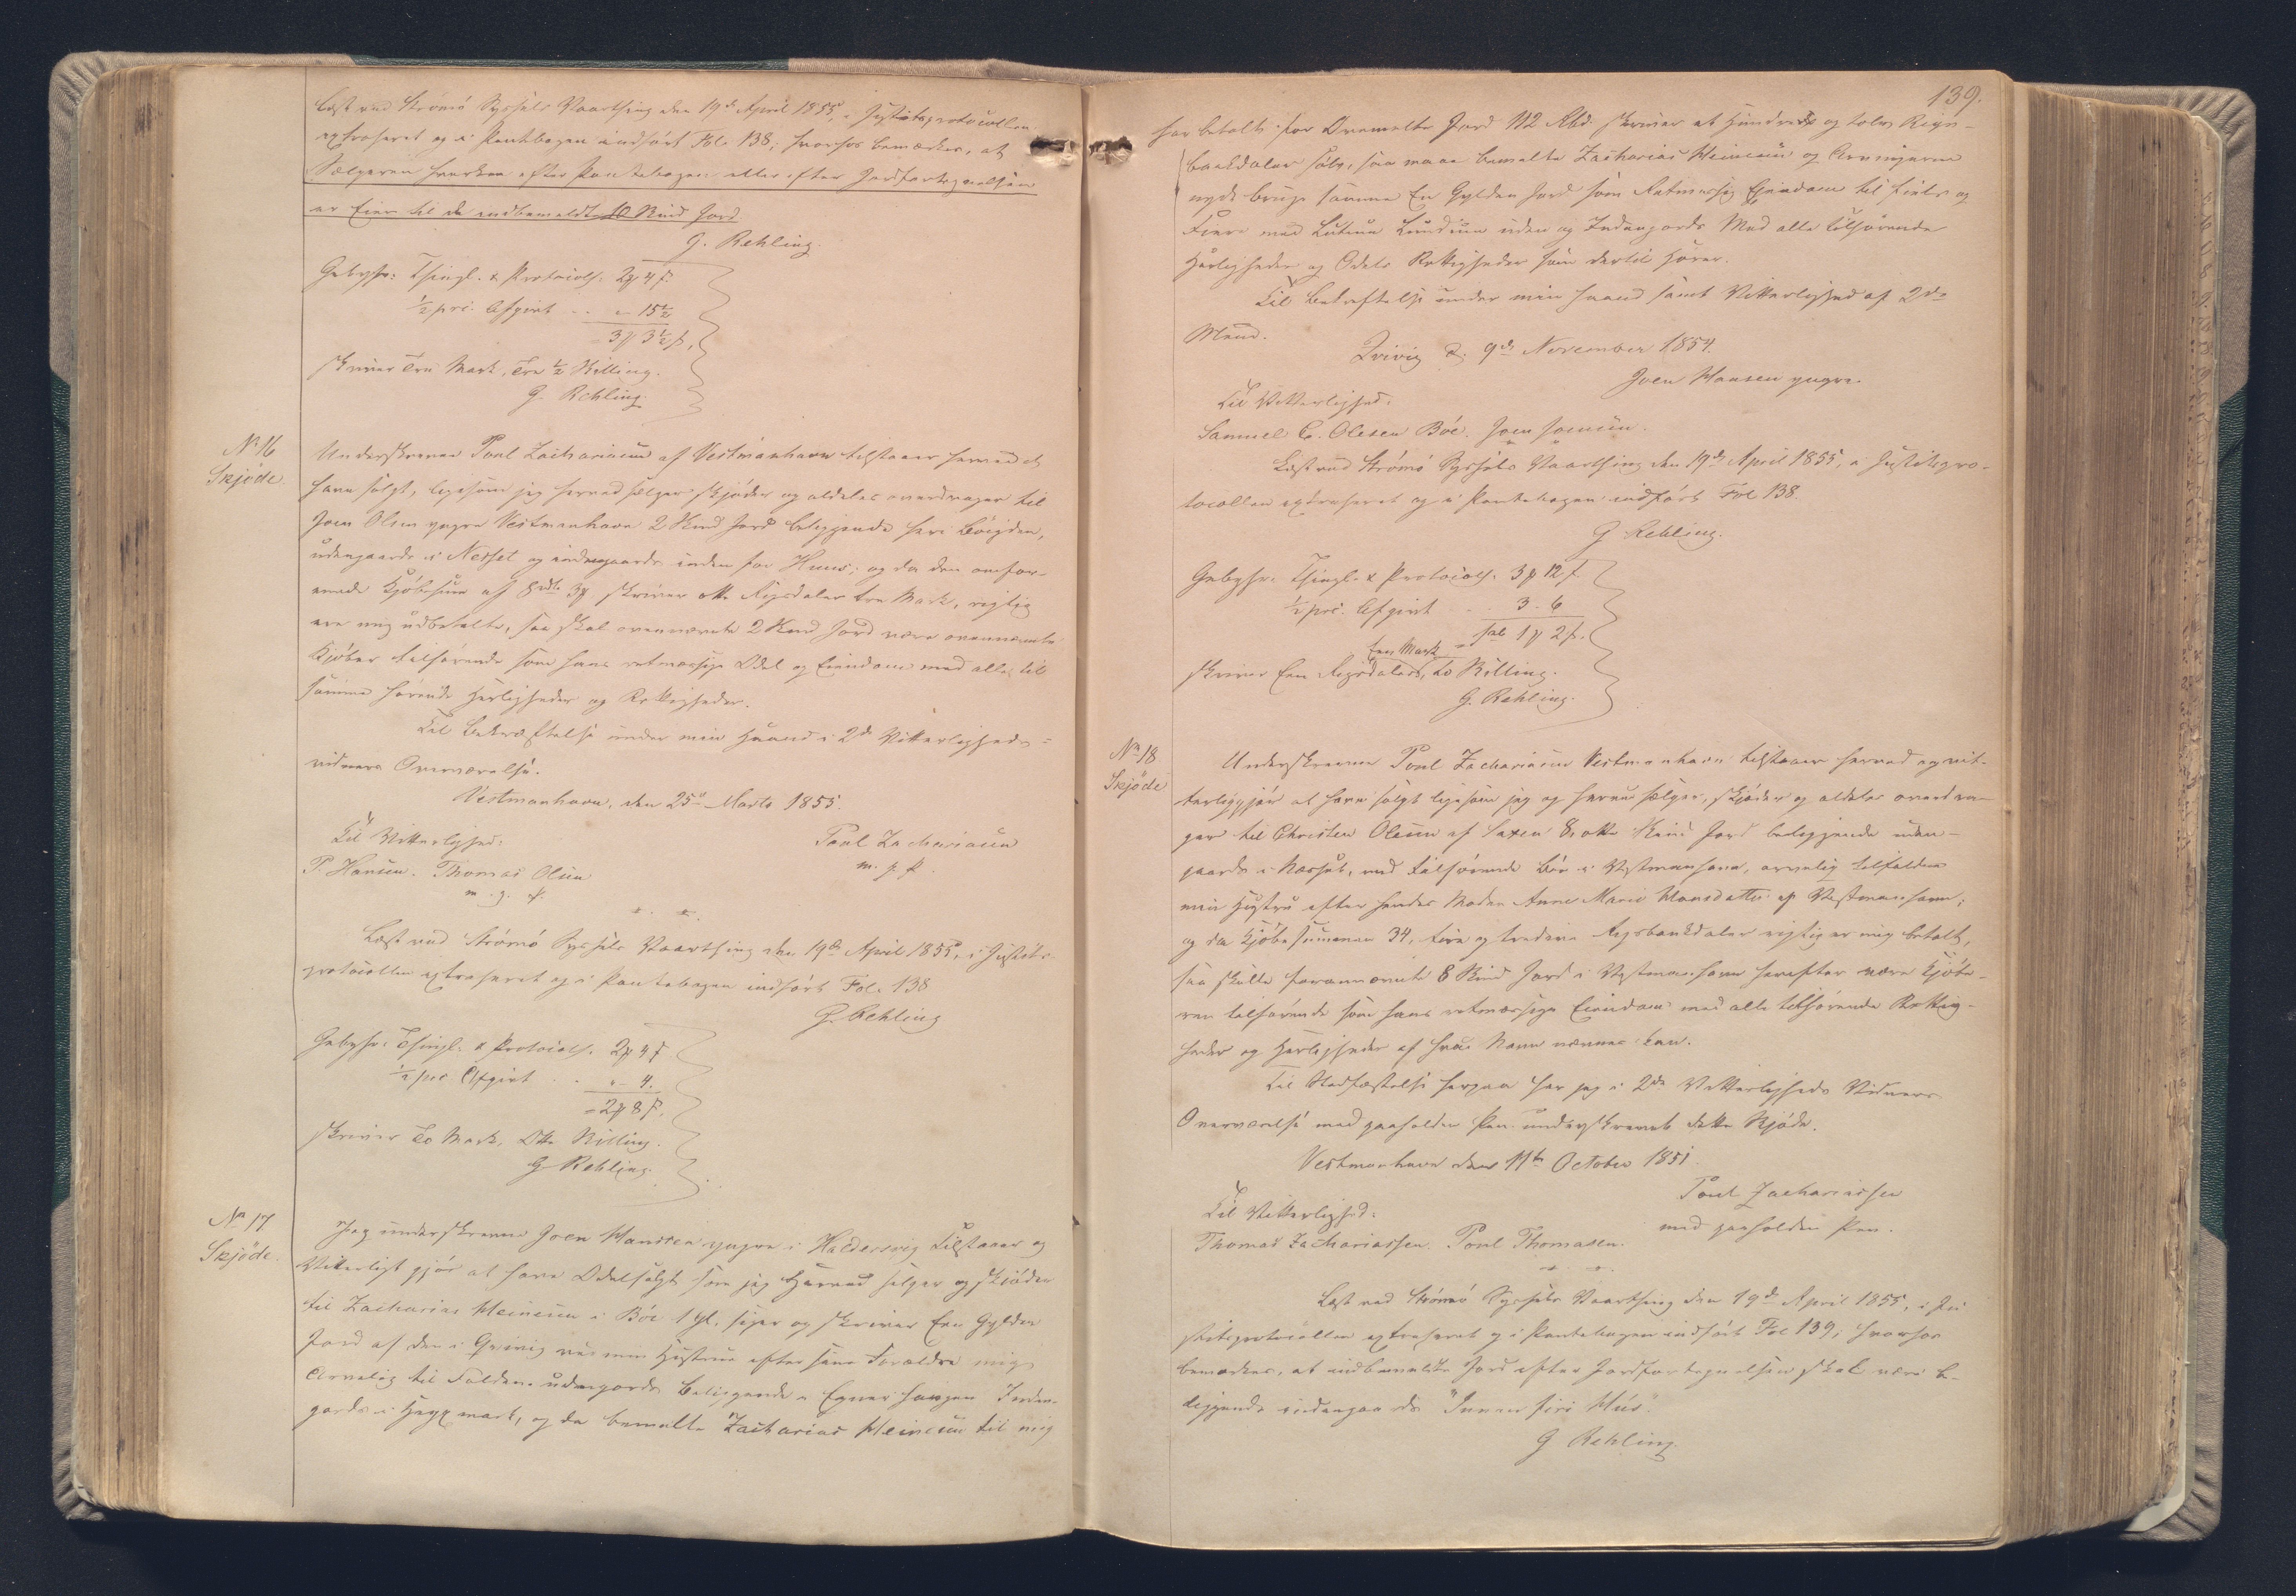 Læst ved Strømø Syssels Vaarthing den 19de April 1855, i Justitsprotocollen
extraheret og i Pantebogen indført Fol. 138; hvorhos bemærkes, at
Sælgeren hverken efter Pantebogen eller efter Jordfortegnelsen
er Eier til de indbemeldte 10 Skind Jord
G. Rehling.
Gebyhr: Thingl. & Protocols. 2 4
½ prc. Afgivt - 15½
= 3 3½
skriver Tre Mark, Tre ½ Skilling.
G. Rehling.
No 16
Skjøde.
Underskrevne Poul Zachariasen af Vestmanhavn tilstaaer herved at
have solgt, ligesom jeg herved sælger skjøder og aldeles overdrager til
Joen Olsen yngre Vestmanhavn 2 Skind Jord beliggende her i Bøigden,
udengaards i Nesset og indengaards inden for Huus; og da den omfor-
enede Kjøbesum af 8 rd 3 skriver otte Rigsdaler tre Mark, rigtig
ere mig udbetalte, saa skal ovennævnte 2 Skind Jord være ovennævnte
Kjøber tilhørende som hans retmæssige Odel og Eiendom med alle til
samme hørende Herligheder og Rettigheder.
Til Bekræftelse under min Haand i 2de Vitterligheds=
vidners Overværelse.
Vestmanhavn, den 25de Marts 1855.
Til Vitterlighed:
Poul Zachariasen
P. Hansen. Thomas Olsen
m. p. f.
Læst ved Strømø Syssels Vaarthing den 19de April 1855, i Justits-
protocollen extraheret og i Pantebogen indført Fol. 138
G. Rehling
Gebyhr: Thingl. & Protocols. 2 4
½ prc Afgivt " - 4.
= 2 8
skriver To Mark, Otte Skilling.
G Rehling.
No 17
Skjøde.
Jeg underskrevne Joen Hansen yngre i Haldersvig Tilstaaer og
Vitterligt gjør at have Odelsolgt som jeg Herved sælger og skiøder
til Zacharias Heinesen i Bøe 1 Gl. siger og skriver Een Gylden
Jord af den i Qvivig min Hustrue efter sine Forældre mig
Arvelig til Falden udengards Beliggende i Inden-
gards i, og da bemelte Zacharias Heinesen til mig
139.
har betalt for Ovemelte Jord 112 Rbd. skriver et Hundrede og tolv Rigs-
bankdaler Sølv, saa maae bemelte Zacharias Heinesen og Arvingerne
nyde bruge samme En Gylden Jord som Retmæssig Ejendom til Fiels og
Fiære med Lutum Lundum uden og Indengards Med alle tilhørende
Herligheder og Odels Rettigheder som dertil Hører.
Til Bekræftelse under min Haand samt Vitterlighed af 2de
Mænd.
Qvivig d. 9de November 1854.
Joen Hansen yngre.
Til Vitterlighed:
Samuel C. Olesen Bøe. Joen Joensen.
Læst ved Strømø Syssels Vaarthing den 19de April 1855, i Justitspro-
tocollen extraheret og i Pantebogen indført Fol 138.
G Rehling.
Gebyhr. Thingl. & Protocols. 3 12
½ prc. Afgivt 3. 6
1 2
Een Mark
skriver Een Rigsdaler, to Skilling.
G. Rehling.
No 18
Skjøde
Underskrevne Poul Zachariasen Vestmanhavn tilstaaer herved og vit-
terliggjør at have solgt ligesom jeg og herved sælger, skjøder og aldeles overdra-
ger til Christen Olesen af Saxen 8, otte Skind Jord beliggende uden-
gaards i Nesset, med tilhørende Bø i Vestmanhavn, arvelig tilfalden
min Hustru efter hendes Moder Anne Marie Hansdatter af Vestmanhavn;
og da Kjøbesummen 34, fire og tredive Rigsbankdaler rigtig er mig betalt,
saa skulle forannævnte 8 Skind Jord i Vestmanhavn herefter være Kjøbe-
ren tilhørende som hans retmæssige Eiendom med alle tilhørende Rettig-
heder og Herligheder af hvad Navn nævnes kan.
Til Stadfæstelse herpaa har jeg i 2de Vitterligheds Vidners
Overværelse med paaholden Pen underskrevet dette Skjøde.
Vestmanhavn den 11te October 1851.
Poul Zachariassen
Til Vitterlighed:
med paaholden Pen.
Thomas Zachariassen. Poul Thomasen.
Læst ved Strømø Syssels Vaarthing den 19de April 1855, i Ju-
stitsprotocollen extraheret og i Pantebogen indført Fol 139; hvorhos
bemærkes, at indbemeldte Jord efter Jordfortegnelsen skal være be-
liggende indengaards "Innan firi Hús".
G Rehling.